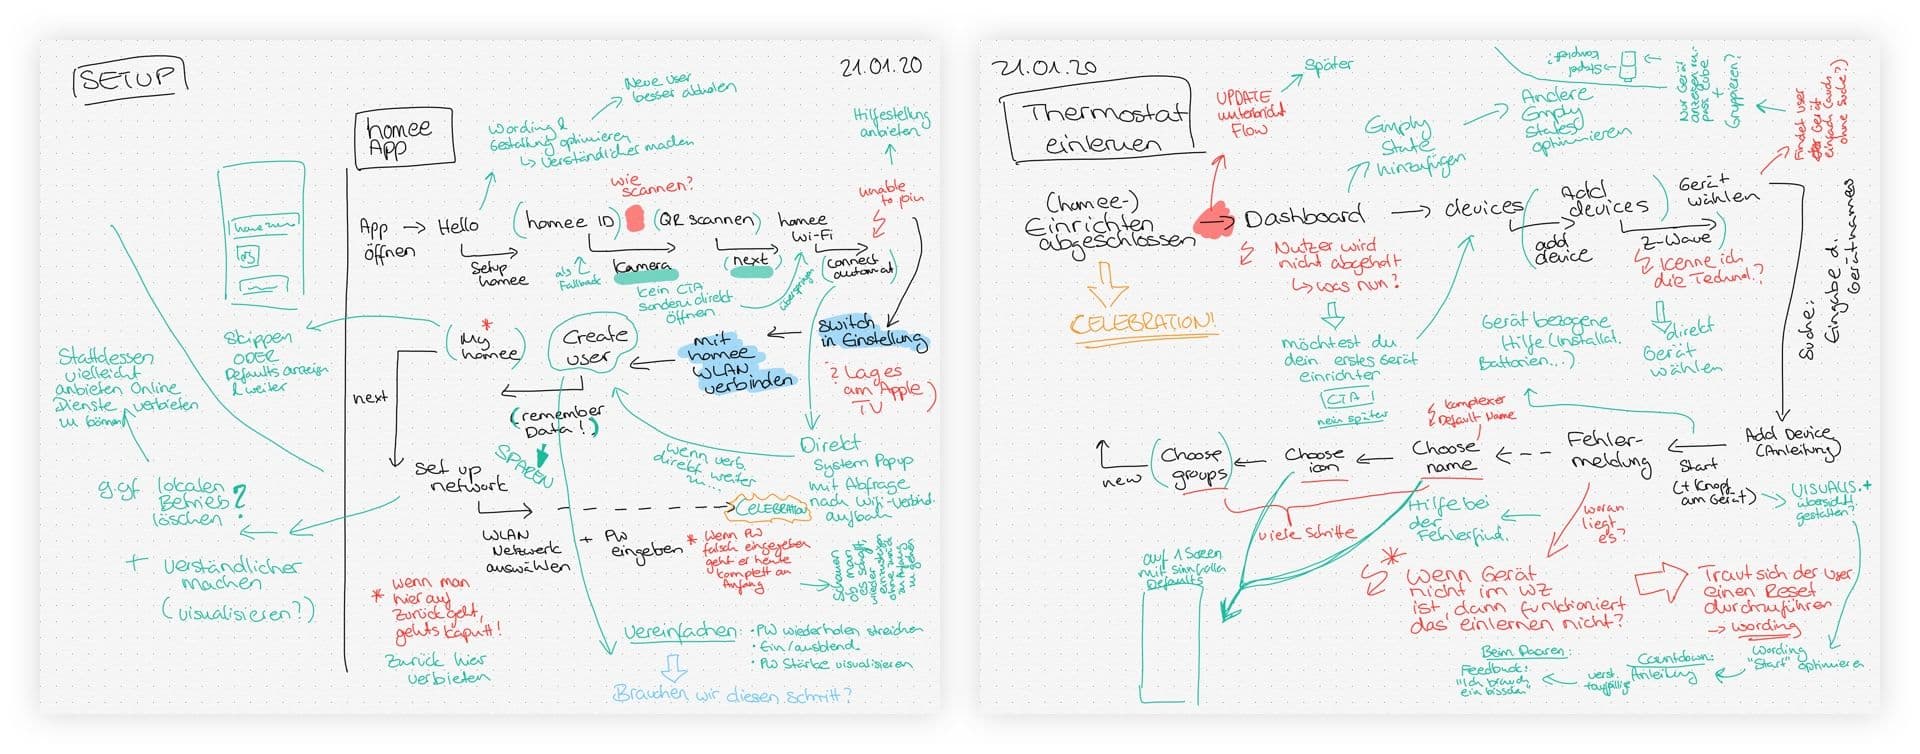 SETUP
21.01.20
homee
App
Neue User
besser abholen
Wording &
Gestaltung optimieren
↳ verständlicher machen
Hilfestellung
anbieten
wie
scannen?
unable
to join
App → Hello
öffnen
Setup
homee
(homee ID)
(QR scannen)
homee
Wi-Fi
als
Fallback
Kamera
(next)
(connect
automat)
kein CTA
sondern direkt
öffnen
überspringen
Skippen
ODER
Defaults anzeigen
& weiter
*
(My
homee)
Create
user
mit
homee
WLAN
verbinden
Switch
in Einstellung
? Lages
am Apple
TV)
Stattdessen
vielleicht
anbieten Online
Dienste verbieten
zu können
next
(remember
Data!)
SPAREN
wenn verb.
direkt weiter
zu...
Direkt
System Popup
mit Abfrage
nach Wifi-Verbind.
aufbau
ggf lokalen
Betrieb
löschen?
+ verständlicher
machen
(visualisieren?)
Set up
network
CELEBRATION
WLAN
Netzwerk
auswählen
+ PW
eingeben
* Wenn PW
falsch eingegeben
geht er heute
komplett an
Anfang
* wenn man
hier auf
zurück geht,
gehts kaputt!
Zurück hier
verbieten
Vereinfachen: • PW wiederholen streichen
• Ein/ausblend.
• PW Stärke visualisieren
Brauchen wir diesen Schritt?
21.01.20
Thermostat
einlernen
UPDATE
unterbricht
Flow
Später
Empty
State
hinzufügen
Andere
Empty
States
optimieren
Stapel
kompriert?
Nur Gerät
anzeigen
+
Gruppieren?
Findet user
der Gerät
einfach (auch
ohne Suche?)
(homee-)
Einrichten
abgeschlossen
Dashboard
devices
Add
devices
add
device
Gerät
wählen
Z-Wave
CELEBRATION!
Nutzer wird
nicht abgeholt
↳ was nun?
Kenne ich
die Technol.?
direkt
Gerät
wählen
Suche:
Eingabe d.
Gerätnamen
möchtest du
dein erstes Gerät
einrichten
CTA!
nein später
Gerät bezogene
Hilfe (Installat.
Batterien...)
komplexer
Default Name
new
(Choose
groups)
Choose
icon
Choose
name
Fehler-
meldung
Start
(+ Knopf
am Gerät)
Add Device
(Anleitung)
viele Schritte
Hilfe bei
der
Fehlerfind.
woran
liegt
es?
VISUALIS. +
übersicht.
gestalten?
auf 1 Screen
mit sinnvollen
Defaults
*
Wenn Gerät
nicht im WZ
ist, dann funktioniert
das einlernen nicht?
Traut sich der User
einen Reset
durchzuführen
→ wording
Wording
"Start" optimieren
Countdown:
Anleitung
verst.
Beim Pairen:
Feedback!
"Ich brauch
ein bisschen"